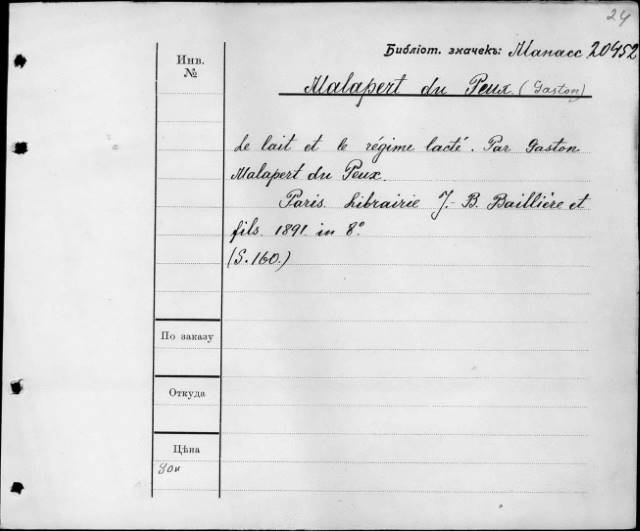 24
Библіот. значекъ: Манасс 20452
Инв.
№
Malapert du Peux (Gaston)
Le lait et le régime lacté. Par Gaston
Malapert du Peux.
Paris. Librairie J.-B. Baillière et
fils. 1891 in 8°
(S. 160.)
По заказу
Откуда
Цѣна